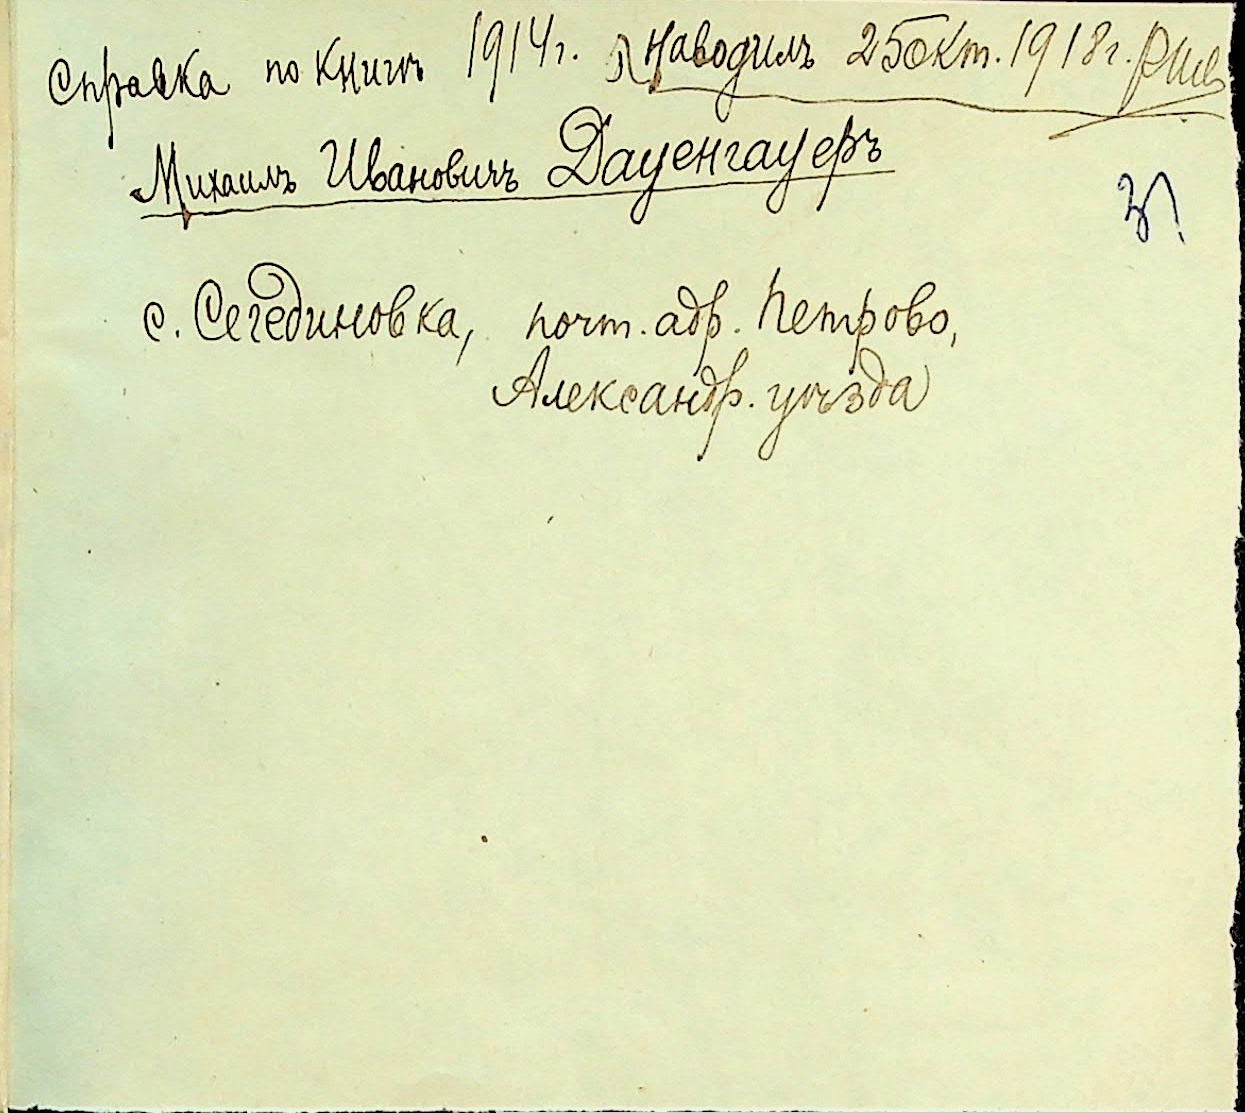 Справка по книгѣ 1914 г. Я наводилъ 25 окт. 1918 г.
Михаилъ Ивановичъ Дауенгауеръ
с. Сегединовка, почт. адр. Петрово,
Александр. уѣзда